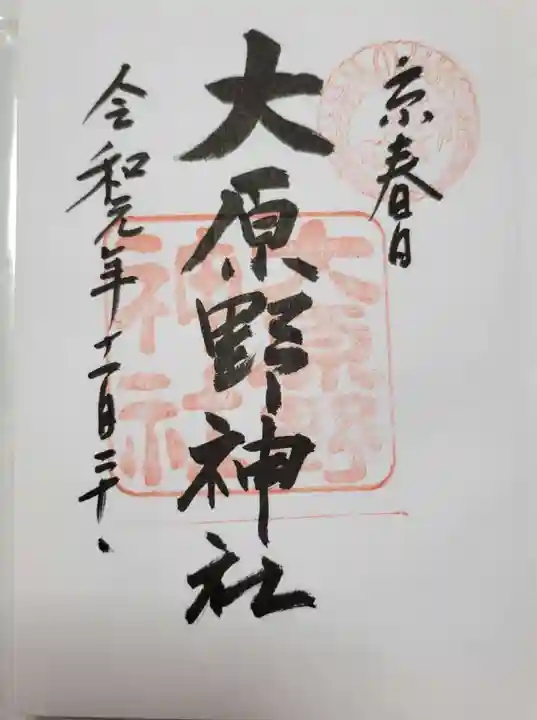 京春日
大原野神社
大原野
神社
令和元年十一月二十、